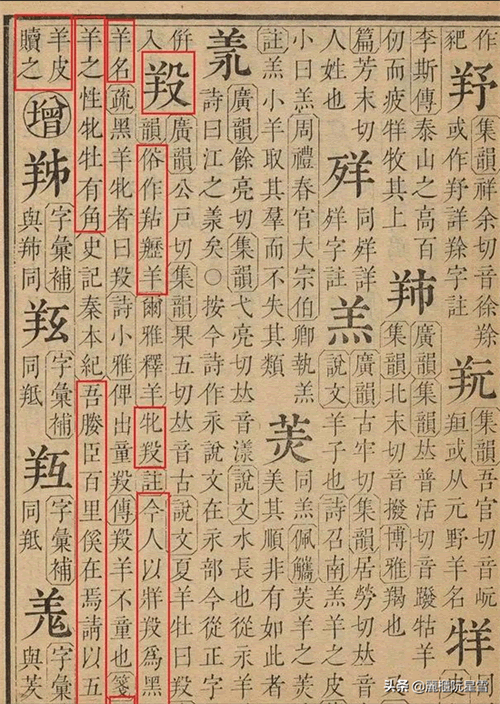 作
韻祥余切音徐
或作
字註
韻吾官切音岏
或从元野羊名
牂
李斯傳泰山之高百
仞而疲牂牧其上
廣韻集韻𠀤普活切音鏺牯羊
集韻北末切音撥博雅羯也
篇芳末切
人姓也
同牂詳
牂字註
羔
廣韻古牢切集韻居勞切𠀤
說文羊子也詩召南羔羊之皮
小曰羔周禮春官大宗伯卿執羔
註羔小羊取其羣而不失其類
羙
同羔佩觿羙羊之
美其順非有如此者
羕
廣韻餘亮切集韻弋亮切𠀤音漾說文水長也從永羊
詩曰江之羕矣○按今詩作永說文在永部今從正字
倂
入
羖
廣韻公戸切集韻果五切𠀤音古說文夏羊牡曰羖
韻俗作羊爾雅釋羊牝羖註今人以牂羖爲黑
羊名疏黑羊牝者曰羖詩小雅俾出童羖傳羖羊不童也箋
羊之性牝牡有角史記秦本紀吾媵臣百里傒在焉請以五
羊皮
贖之
增
字彙補
同
字彙補
同羝
字彙補
同羝
羗
字彙補
與
頭条